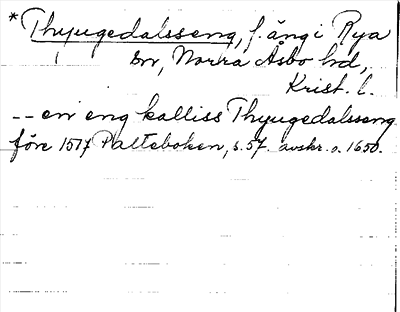 *Thyugedalsseng, f. äng i Rya
sn, Norra Åsbo hd,
Krist. l.
-- en eng kalliss Thyugedalsseng
före 1517 Palteboken, s. 57. avskr. o. 1650.